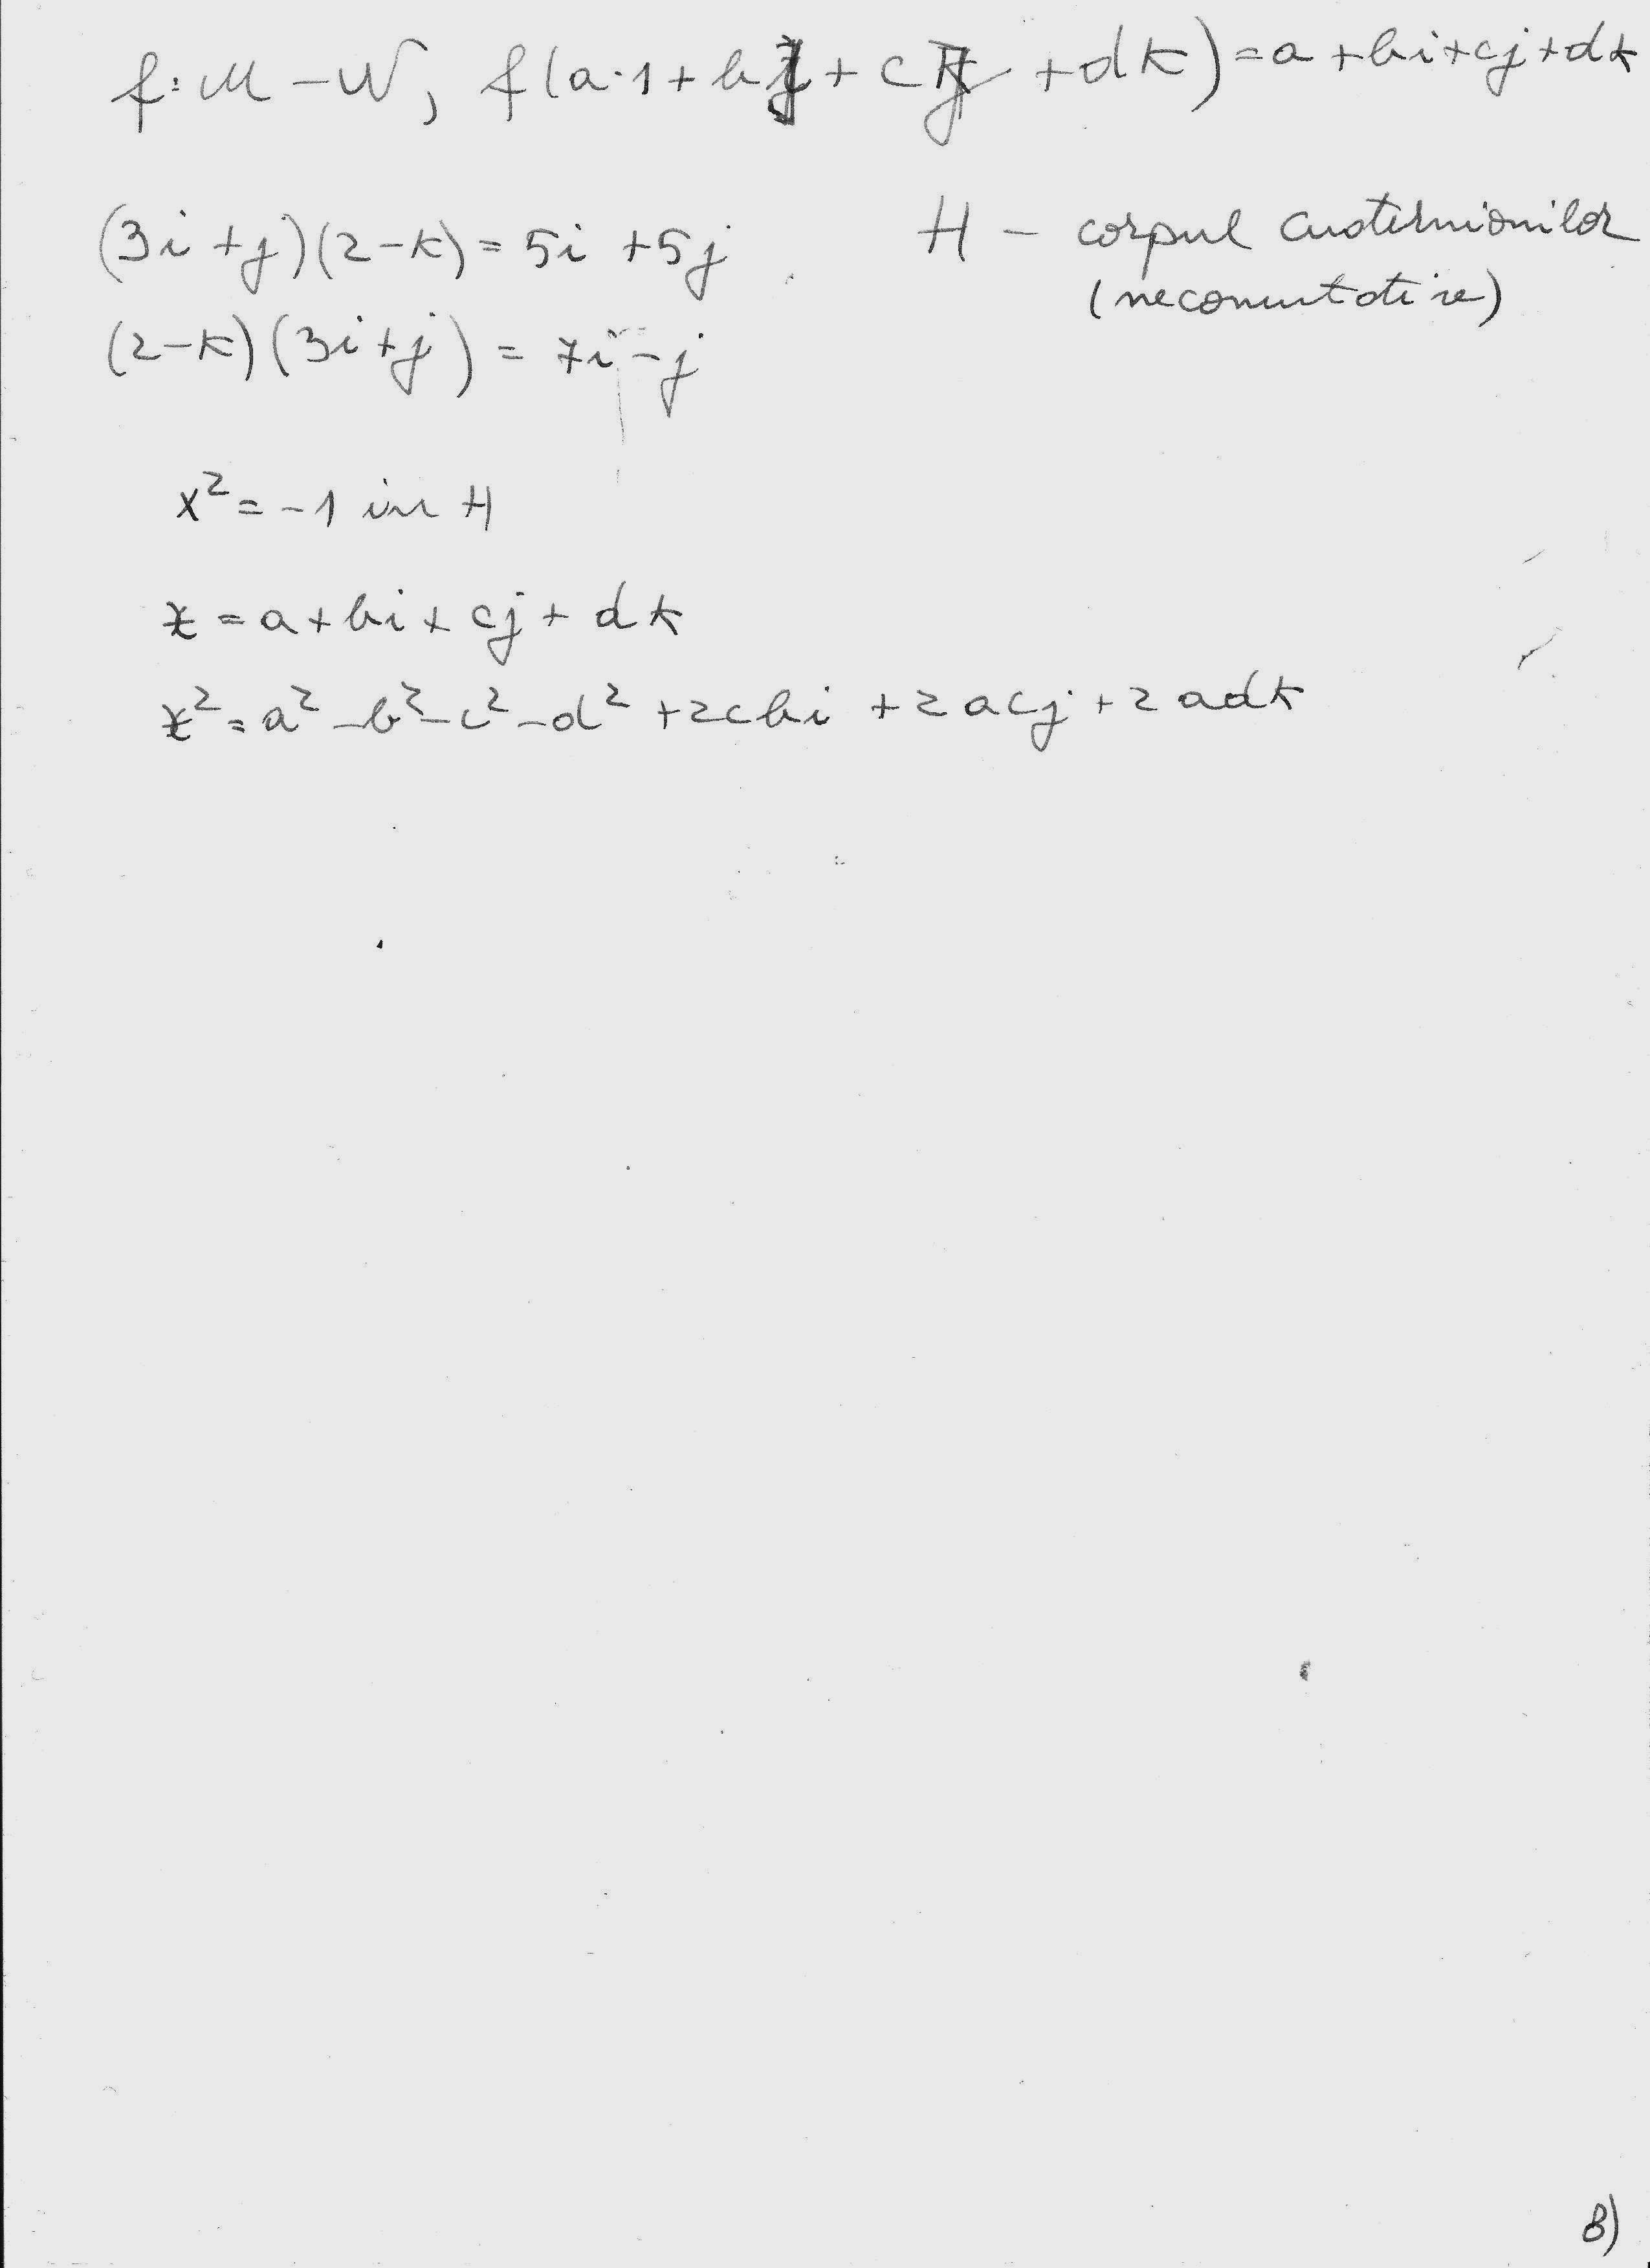 f: M – W, f(a·1 + bj + cj + dk) = a + bi + cj + dk
(3i + j)(2 – k) = 5i + 5j
H – corpul cuaternionilor
(necomutative)
(2 – k)(3i + j) = 7i – j
x² = –1 in H
z = a + bi + cj + dk
z² = a² – b² – c² – d² + 2cbi + 2acj + 2adk
8)